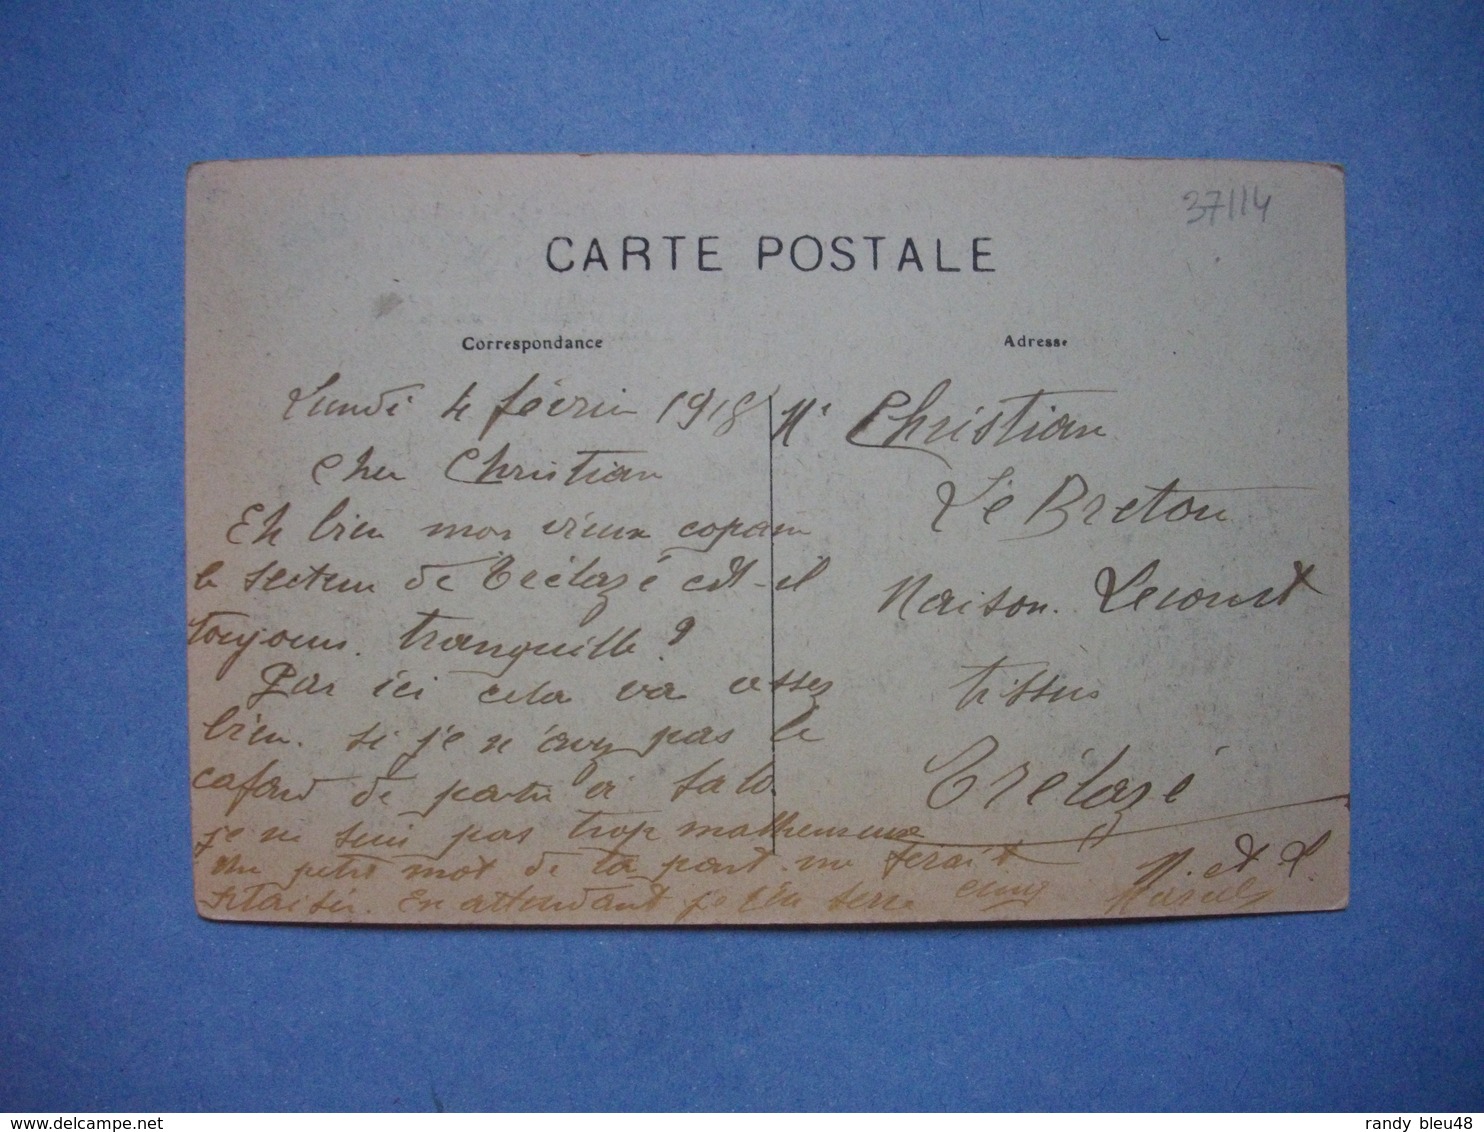 37114
CARTE POSTALE
Correspondance
Lundi 4 février 1918
Cher Christian
Eh bien mon vieux copain
le secteur de Trélazé est-il
toujours tranquille ?
Par ici cela va assez
bien. Si je n'avais pas le
cafard de partir à
je ne suis pas trop malheureux
Un petit mot de ta part me ferait
plaisir. En attendant je t'en serre cinq
Marcel
Adresse
Mr Christian
Le Breton
Maison Lecourt
tissus
Trélazé
M. et L.
delcampe.net
randy_bleu48